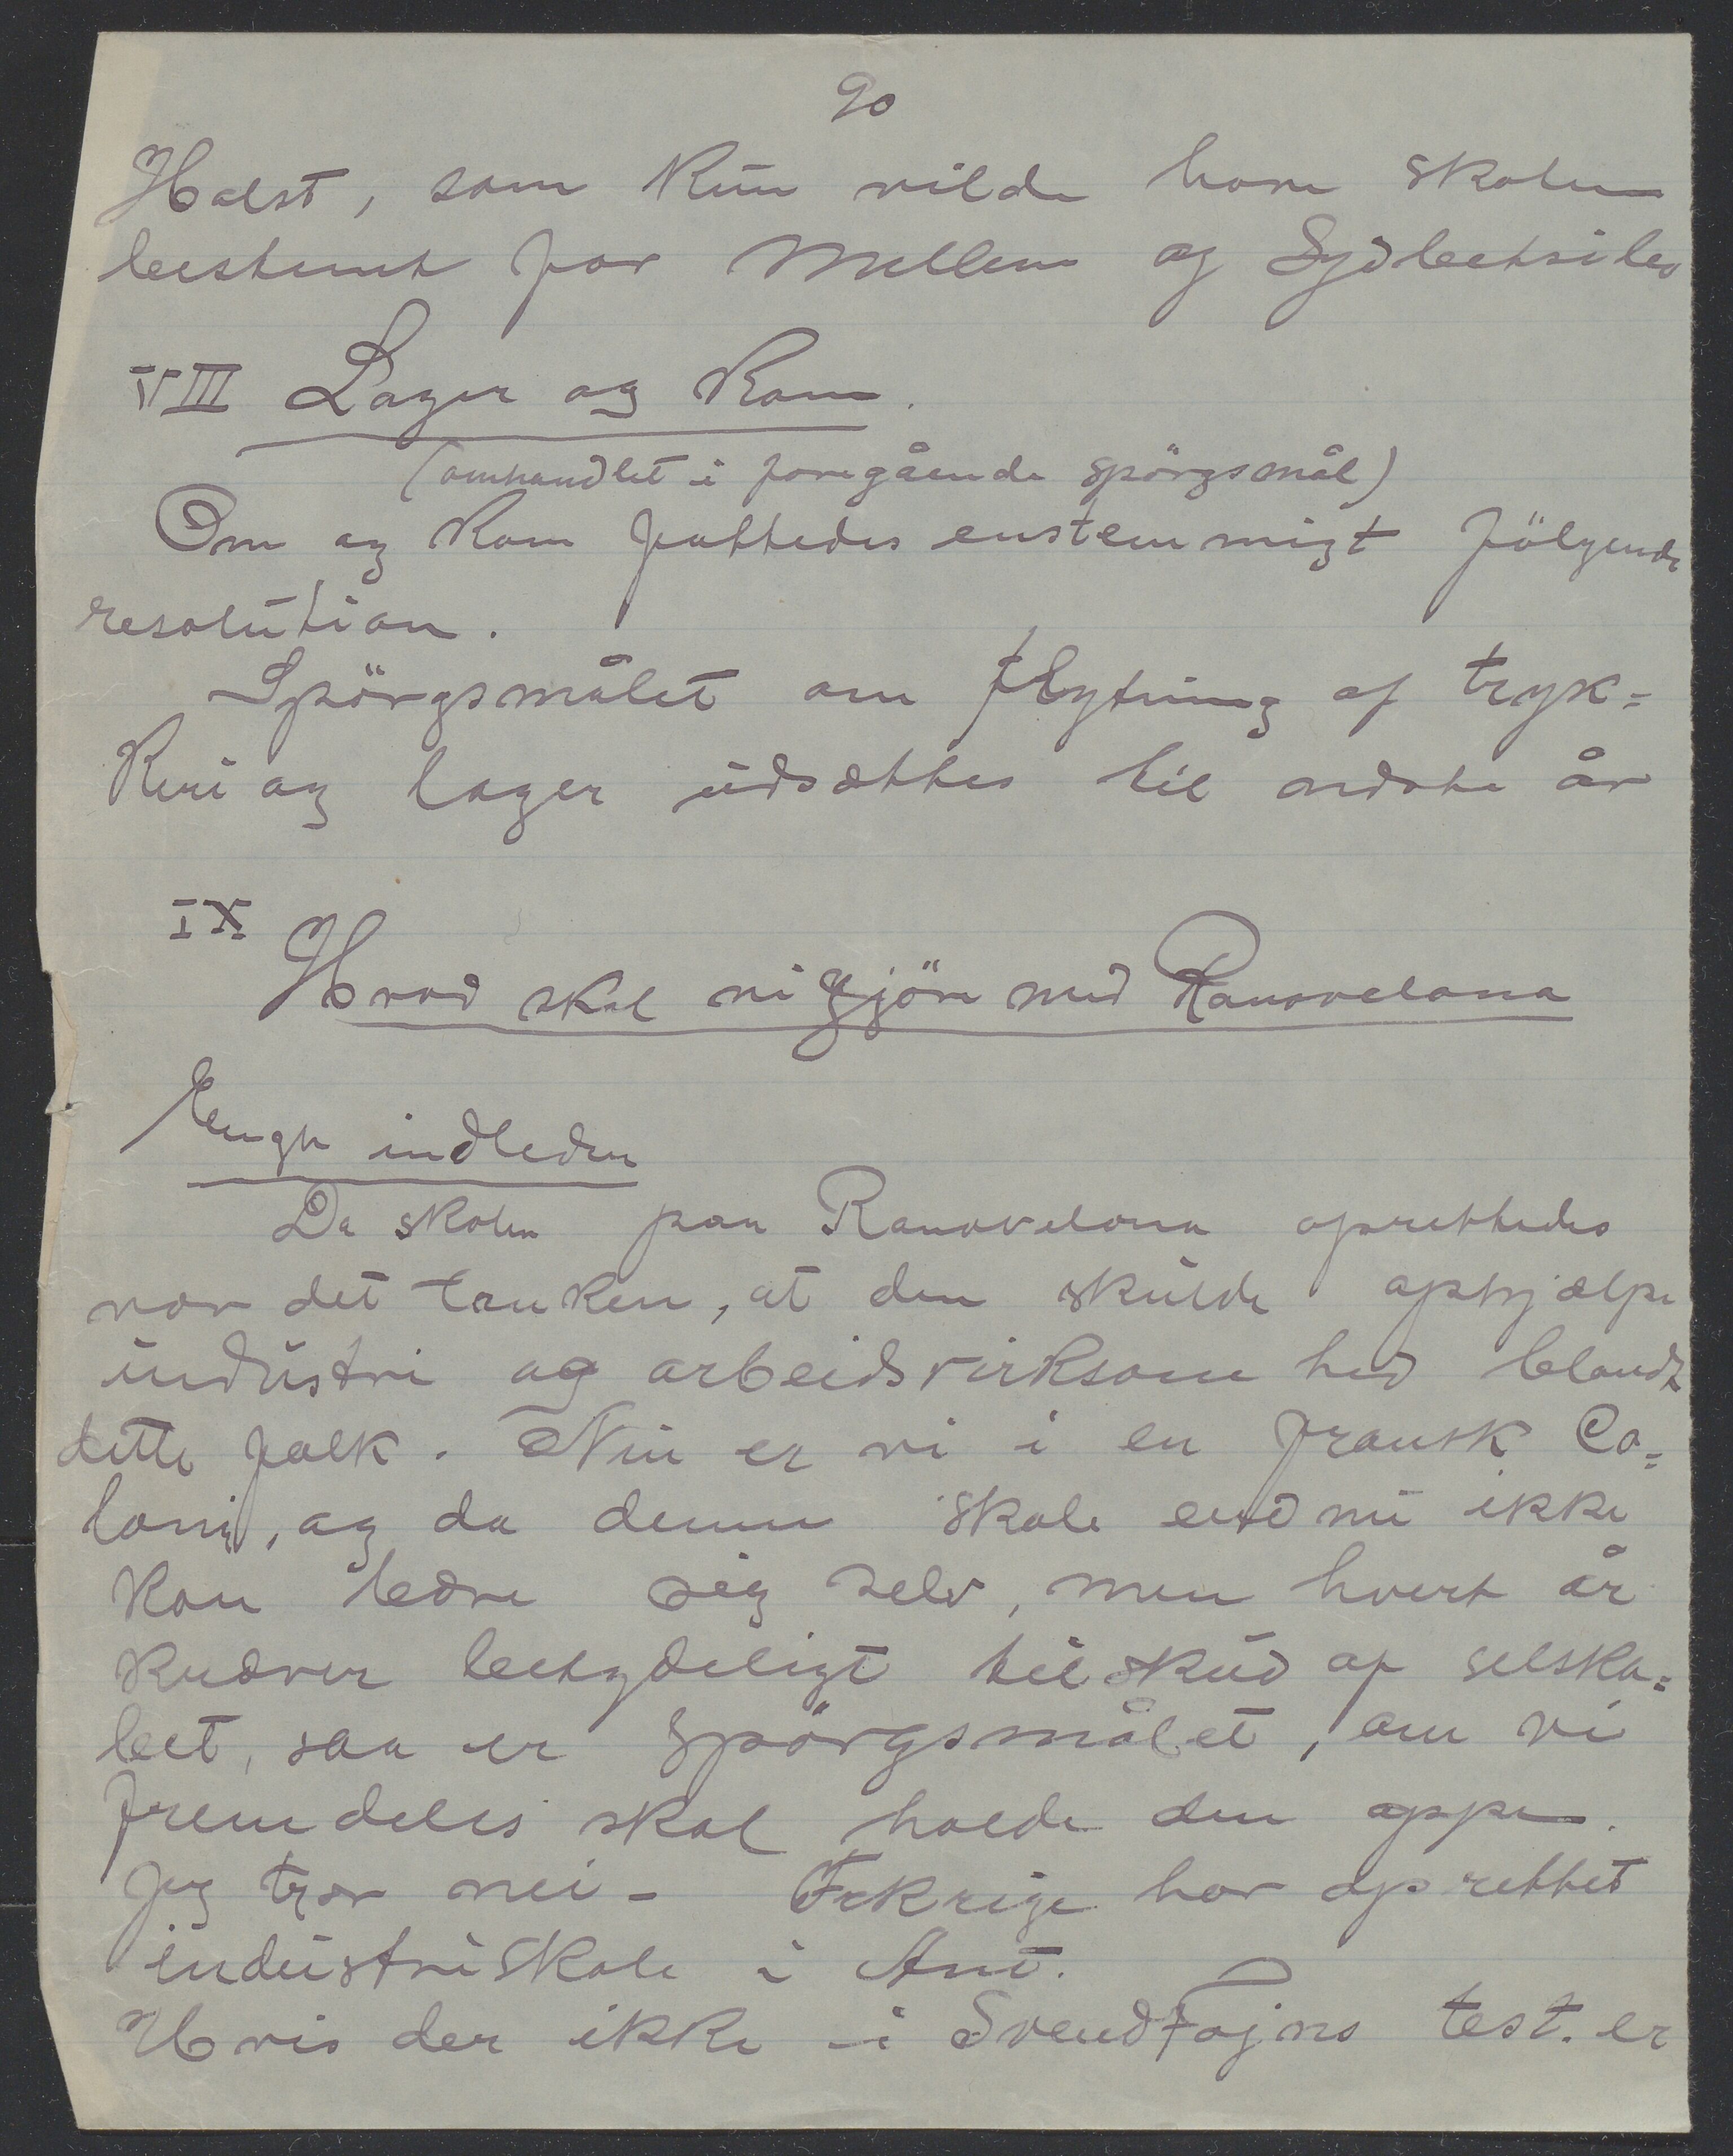 90
Holst, som kun vilde have skolen
bestemt for Mellem og Sydbetsileo
VIII Lager og Kom.
(omhandlet i foregående spörgsmål)
Om og Kom fattedes enstemmigt fölgende
resolution.
Spörgsmålet om flytning af tryk=
keri og lager udsættes til næste år
IX
Hvad skal vi gjöre med Ranovelona
Engh indleder
Da skolen paa Ranovelona oprettedes
var det tanken, at den skulde ophjælpe
industri og arbeidsvirksomhed blandt
dette folk. Nu er vi i en fransk Co=
loni, og da denne skole endnu ikke
kan bære sig selv, men hvert år
kræver betydeligt tilskud af selska=
bet, saa er spörgsmålet, om vi
fremdeles skal holde den oppe.
Jeg tror nei - har oprettet
industriskole i Ant.
Hvis der ikke i SvendFojns test. er